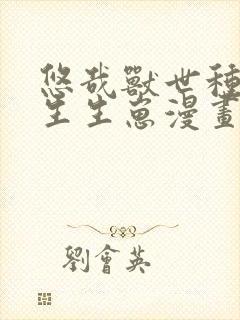 悠哉獸世種
生生崽漫畫
劉會英